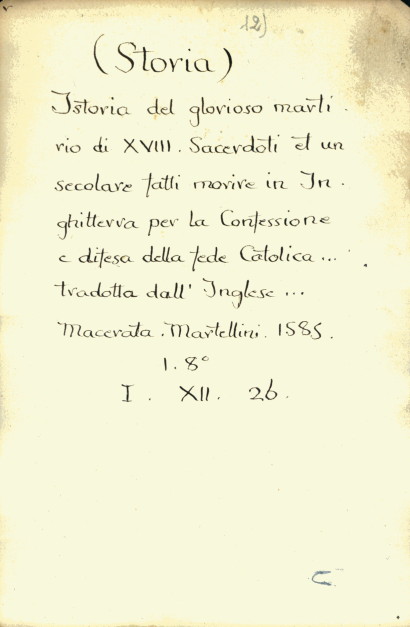 12)
(Storia)
Istoria del glorioso marti.
rio di XVIII. Sacerdoti et un
secolare fatti morire in In.
ghilterra per la Confessione
e difesa della fede Catolica...
tradotta dall' Inglese...
Macerata. Martellini. 1585.
1. 8°
I. XII. 26.